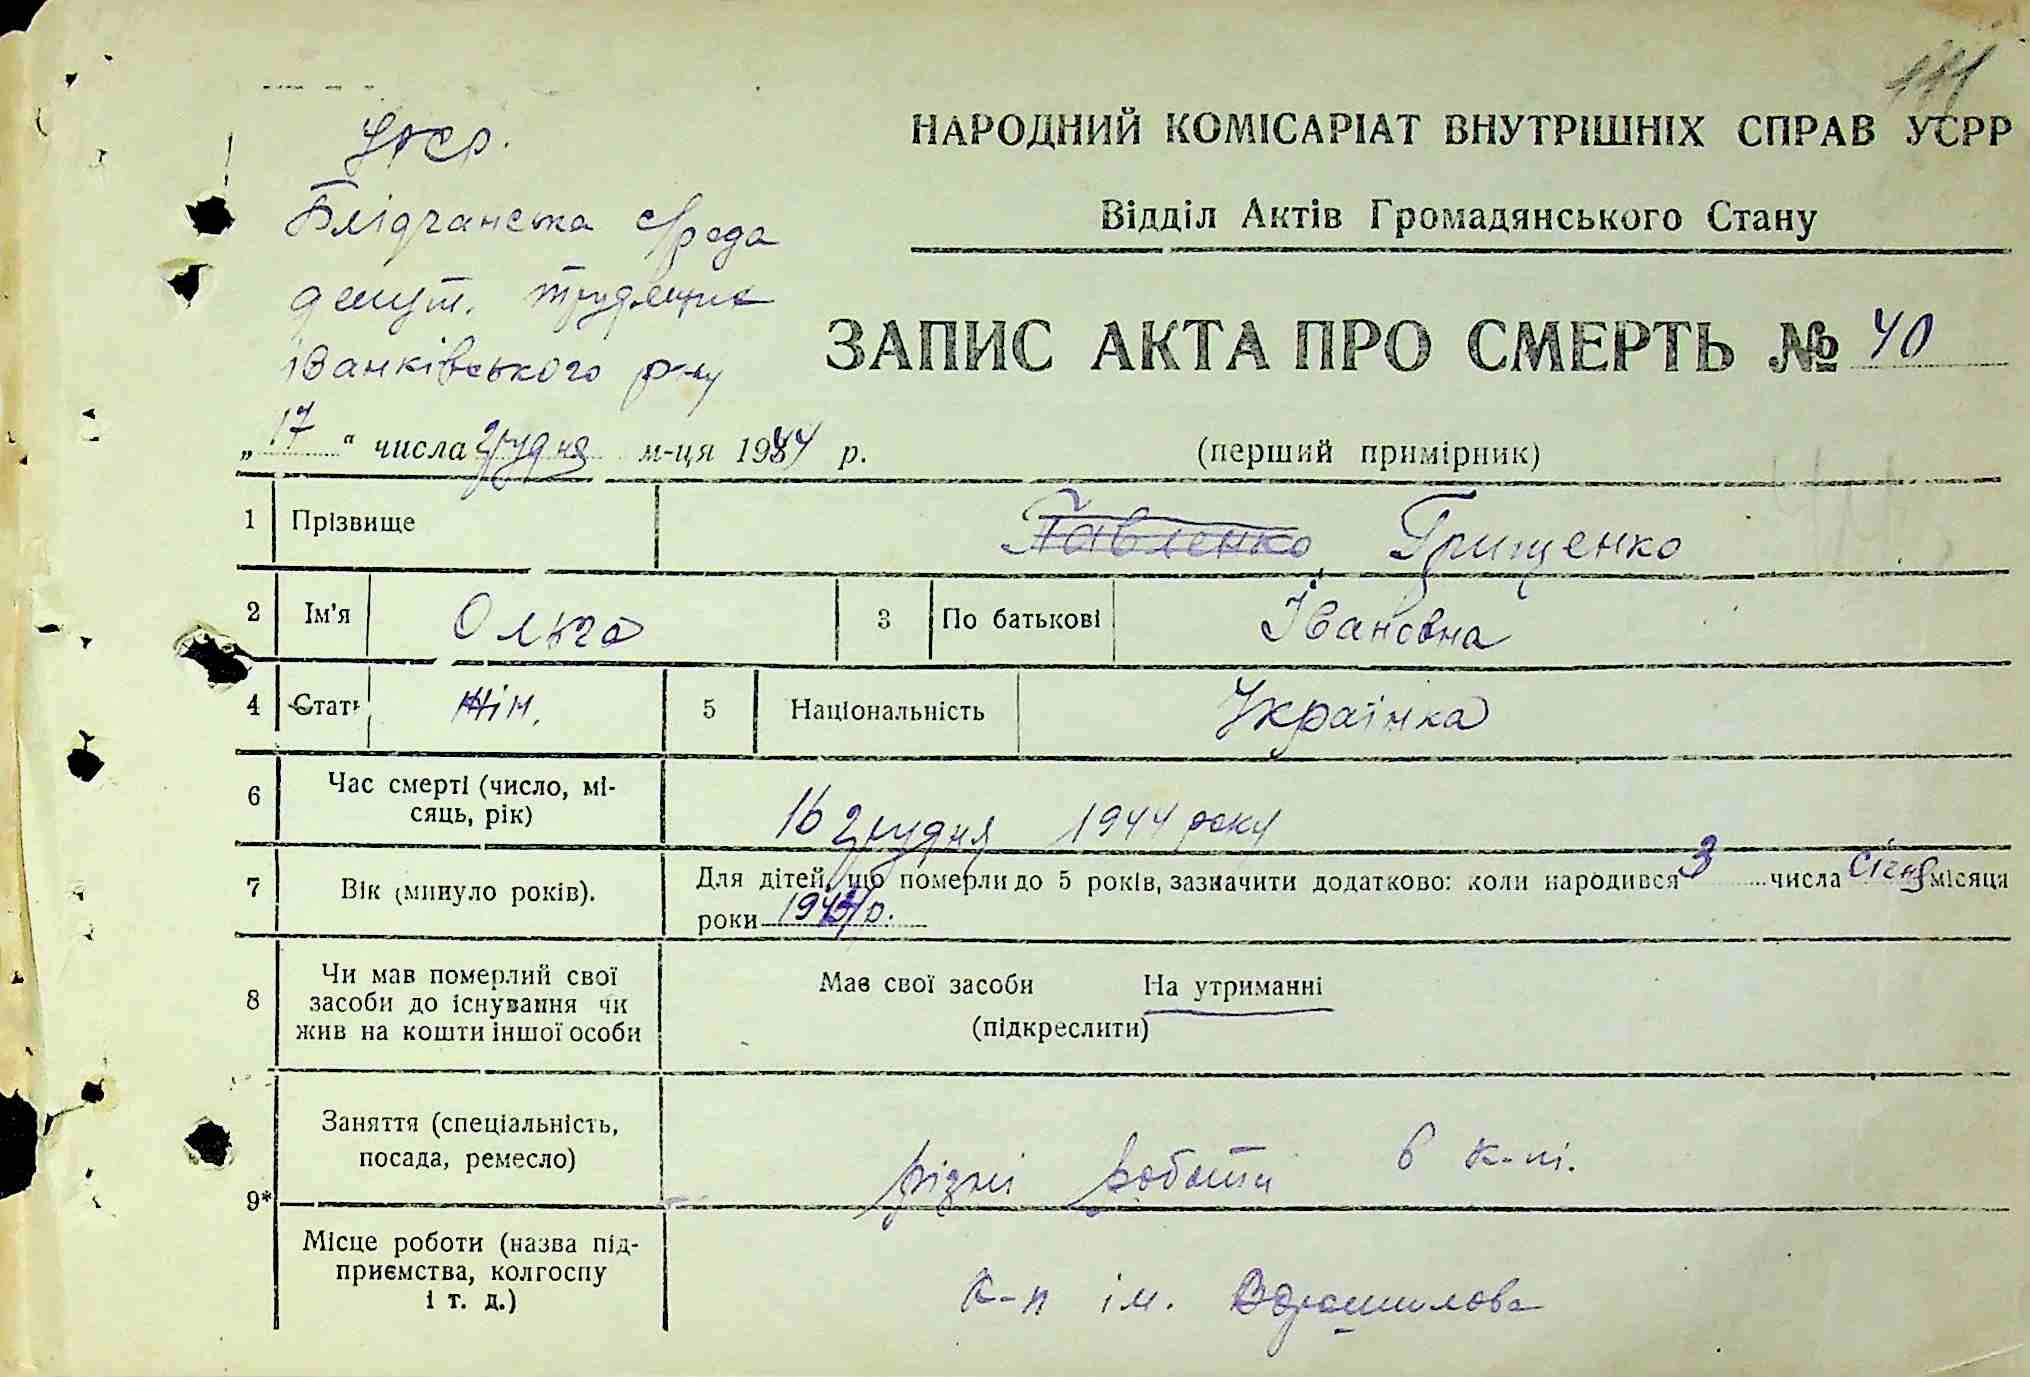 141
УРСР.
НАРОДНИЙ КОМІСАРІАТ ВНУТРІШНІХ СПРАВ УСРР
Блідчанська с/рада
Відділ Актів Громадянського Стану
депут. трудящих
іванківського р-ну
ЗАПИС АКТА ПРО СМЕРТЬ № 40
„17“ числа грудня м-ця 1944 р.
(перший примірник)
1 Прізвище Павленко Грищенко
2 Ім'я Ольга 3 По батькові Івановна
4 Стать жін. 5 Національність Українка
6 Час смерті (число, мі-
сяць, рік) 16 грудня 1944 року
7 Вік (минуло років). Для дітей, що померли до 5 років, зазначити додатково: коли народився 3 числа січня місяця
роки
8 Чи мав померлий свої
засоби до існування чи
жив на кошти іншої особи
Мав свої засоби На утриманні
(підкреслити)
Заняття (спеціальність,
посада, ремесло) різні роботи в к-пі.
9*
Місце роботи (назва під-
приємства, колгоспу
і т. д.) К-п ім. Ворошилова